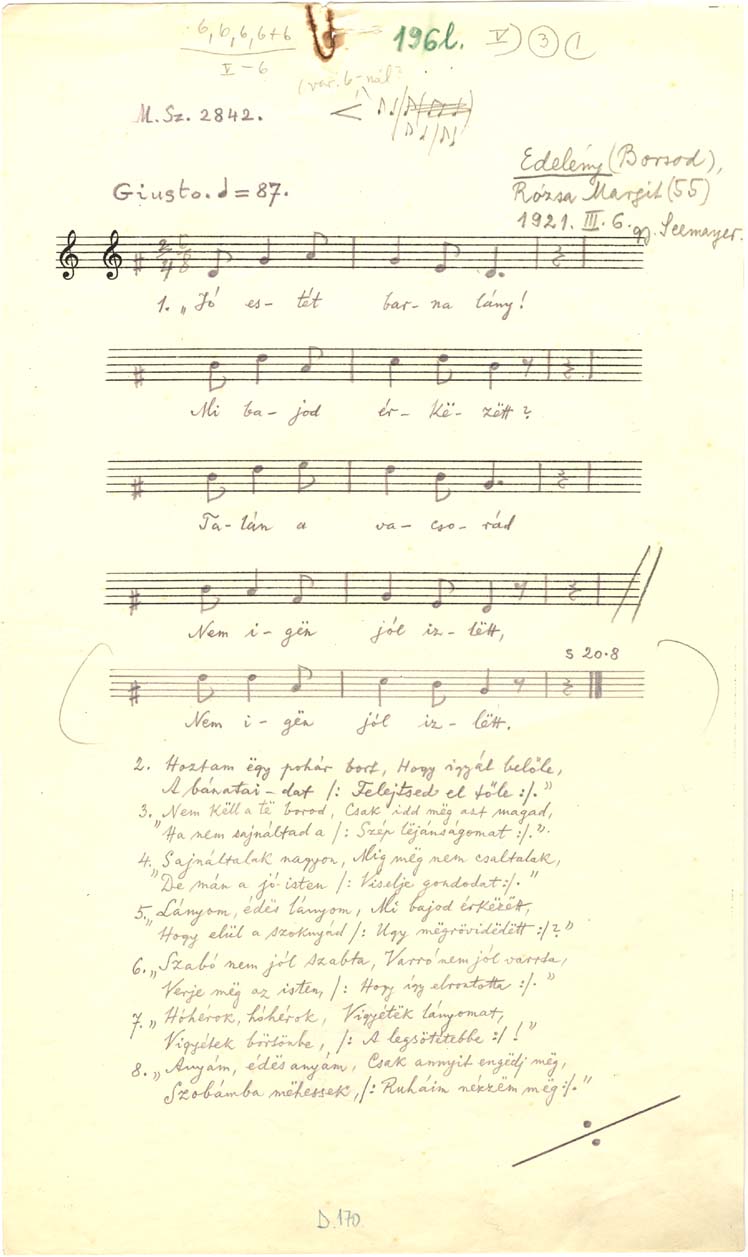 6, 6, 6, 6+6
V – 6
196l. V) 3 1
(var. 6-nál
M. Sz. 2842.
Edelény (Borsod),
Rózsa Margit (55)
1921. III. 6. gy. Seemayer.
Giusto. ♩ = 87.
2/4 5/8
1. „Jó es- tét bar- na lány!
Mi ba- jod ér- kë- zëtt?
Ta- lán a va- cso- rád
Nem i- gën jól iz- lëtt,
s 20.8
Nem i- gën jól iz- lëtt.
2. Hoztam ëgy pohár bort, Hogy igyál belőle,
A bánatai-dat /: Felejtsed el tőle :/."
3. „Nem këll a të borod, Csak idd mëg azt magad,
Ha nem sajnáltad a /: Szép lëjánságomat :/."
4. „Sajnáltalak nagyon, Míg mëg nem csaltalak,
De mán a jó isten /: Viselje gondodat :/."
5. „Lányom, édës lányom, Mi bajod érkëzëtt,
Hogy elül a szoknyád /: Ugy mëgrövidëdëtt :/?"
6. „Szabó nem jól szabta, Varró nem jól varrta,
Verje mëg az isten, /: Hogy így elrontotta :/."
7. „Hóhérok, hóhérok, Vigyétëk lányomat,
Vigyétek börtönbe, /: A legsötétebbe :/!"
8. „Anyám, édës anyám, Csak annyit engëdj mëg,
Szobámba mëhessek, /: Ruháim nézzëm mëg :/."
D.170